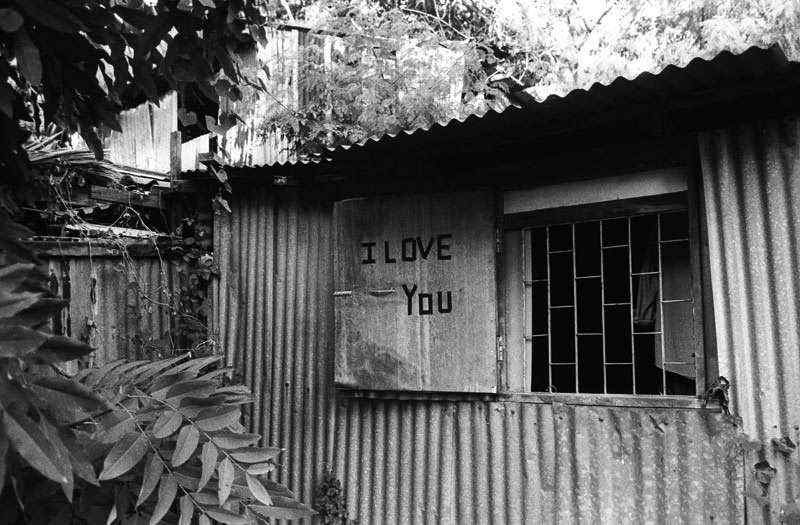 I LOVE
You